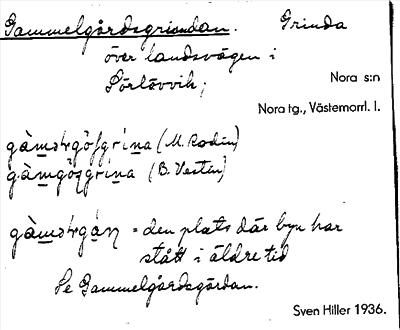 Gammelgårdsgrindan. Grinda
över landsvägen i
Sörlövvik;
Nora s:n
Nora tg., Västernorrl. l.
(M. Rodin)
(B. Vestin)
= den plats där byn har
stått i äldre tid
Se Gammelgårdsgärdan.
Sven Hiller 1936.